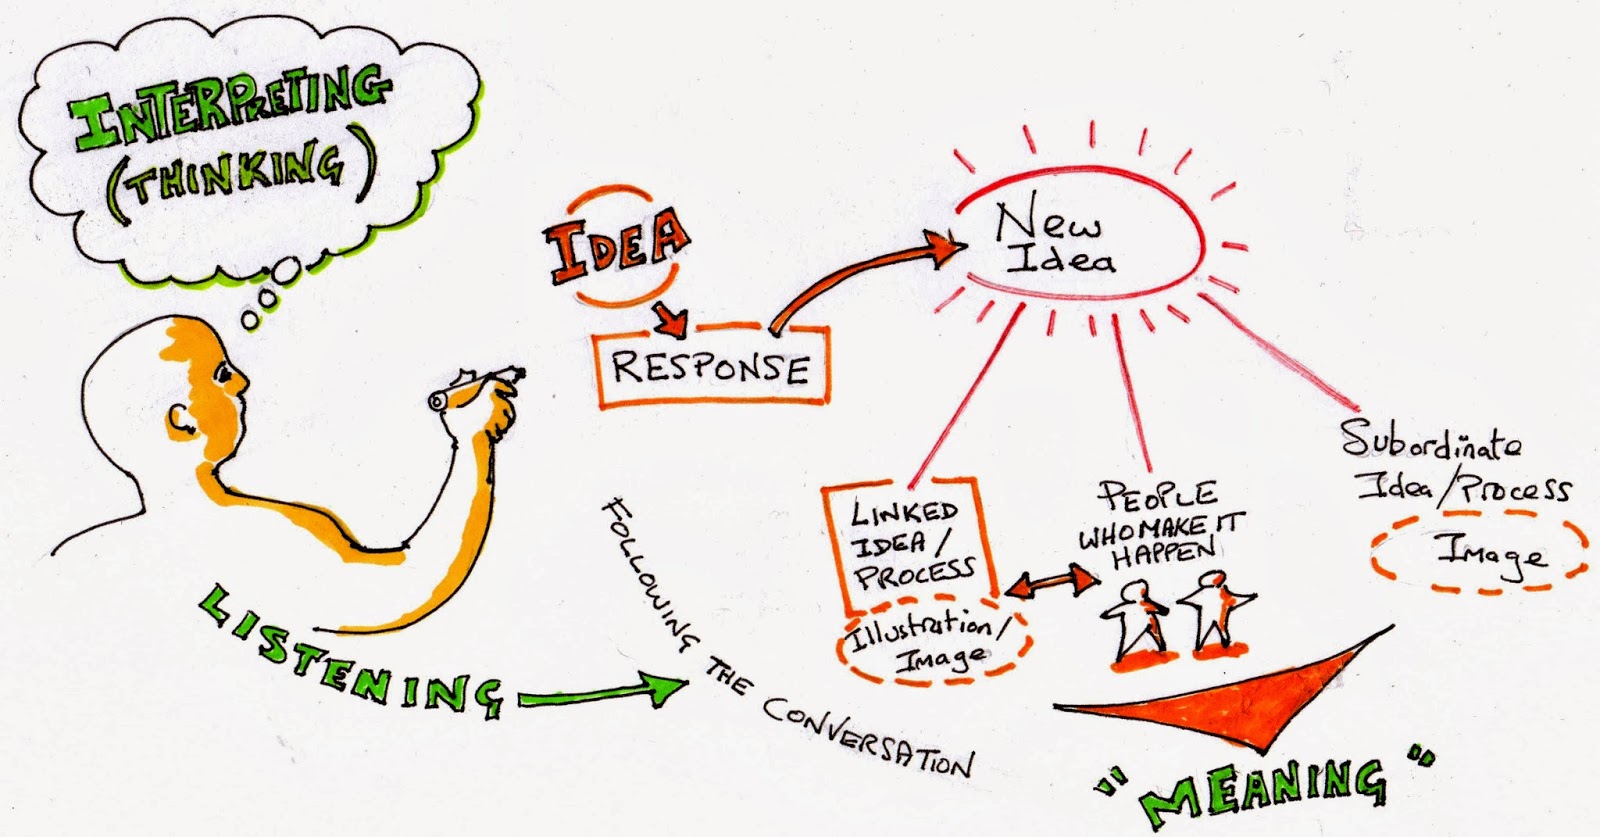 INTERPRETING
(THINKING)
IDEA
RESPONSE
New
Idea
LINKED
IDEA/
PROCESS
Illustration/
Image
PEOPLE
WHO MAKE IT
HAPPEN
Subordinate
Idea/Process
Image
LISTENING
FOLLOWING THE CONVERSATION
"MEANING"